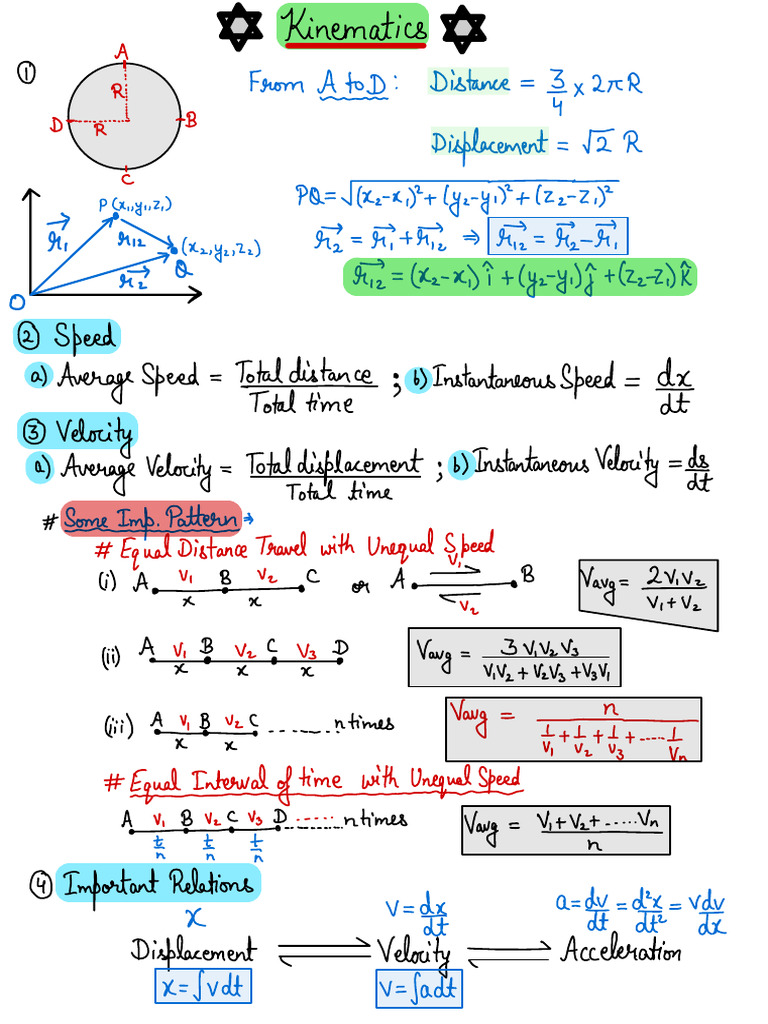 Kinematics
①
A
R
D R B
C
From A to D : Distance = 3/4 × 2πR
Displacement = √2 R
P(x₁,y₁,z₁)
r⃗₁ r⃗₁₂ (x₂,y₂,z₂)
Q
r⃗₂
O
PQ = √(x₂-x₁)²+(y₂-y₁)²+(z₂-z₁)²
r⃗₂ = r⃗₁ + r⃗₁₂ ⇒ r⃗₁₂ = r⃗₂ - r⃗₁
r⃗₁₂ = (x₂-x₁)î + (y₂-y₁)ĵ + (z₂-z₁)k̂
② Speed
a) Average Speed = Total distance / Total time ; b) Instantaneous Speed = dx/dt
③ Velocity
a) Average Velocity = Total displacement / Total time ; b) Instantaneous Velocity = ds/dt
# Some Imp. Pattern →
# Equal Distance Travel with Unequal Speed
(i) A V₁ B V₂ C or A V₁ B Vavg = 2V₁V₂ / V₁+V₂
x x V₂
(ii) A V₁ B V₂ C V₃ D Vavg = 3V₁V₂V₃ / V₁V₂+V₂V₃+V₃V₁
x x x
(iii) A V₁ B V₂ C ........ n times Vavg = n / 1/V₁ + 1/V₂ + 1/V₃ + ..... 1/Vn
x x
# Equal Interval of time with Unequal Speed
A V₁ B V₂ C V₃ D ........ n times Vavg = V₁+V₂+.....Vn / n
t/n t/n t/n
④ Important Relations
x V = dx/dt a = dv/dt = d²x/dt² = vdv/dx
Displacement ⇌ Velocity ⇌ Acceleration
x = ∫vdt V = ∫adt